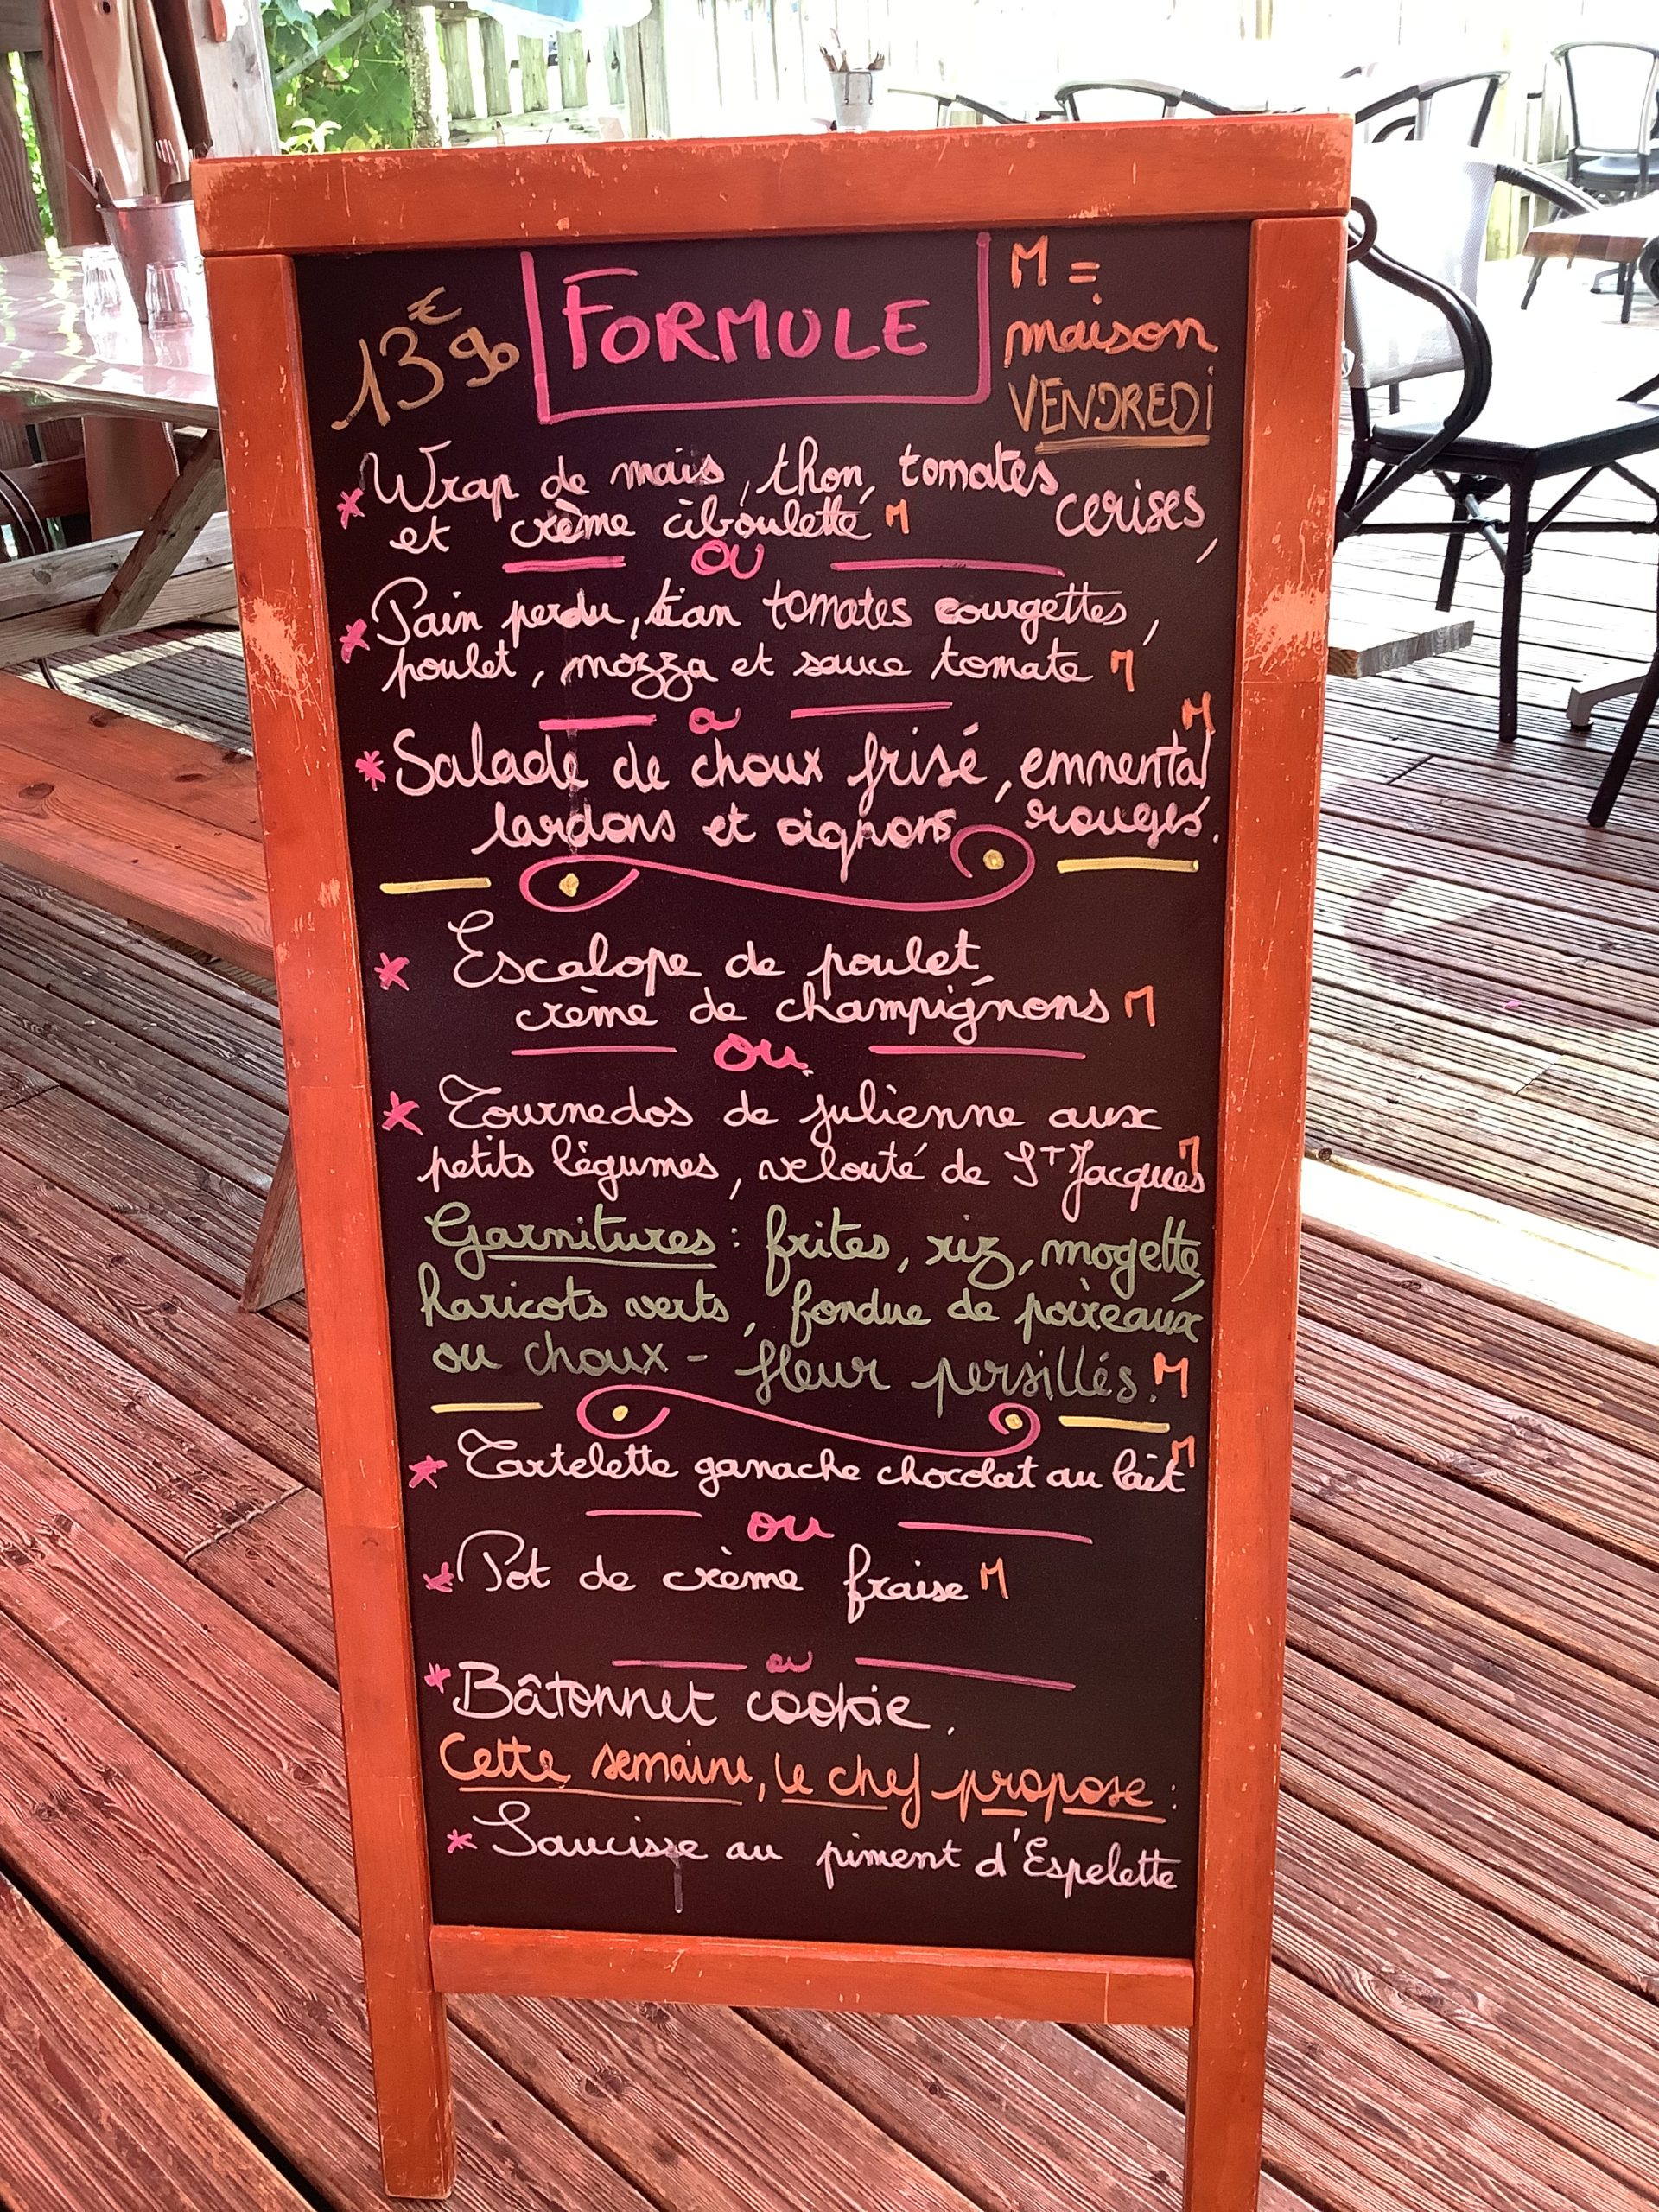 13€90
FORMULE
M =
maison
VENDREDI
* Wrap de maïs, thon, tomates cerises,
et crème ciboulette M
OU
* Pain perdu, tian tomates courgettes,
poulet, mozza et sauce tomate M
* Salade de choux frisé, emmental M
lardons et oignons rouges.
* Escalope de poulet,
crème de champignons M
ou
* Tournedos de julienne aux
petits légumes, velouté de St Jacques M
Garnitures : frites, riz, mogette,
haricots verts, fondue de poireaux
ou choux-fleur persillés. M
* Tartelette ganache chocolat au lait M
ou
* Pot de crème fraise M
ou
* Bâtonnet cookie.
Cette semaine, le chef propose :
* Saucisse au piment d'Espelette